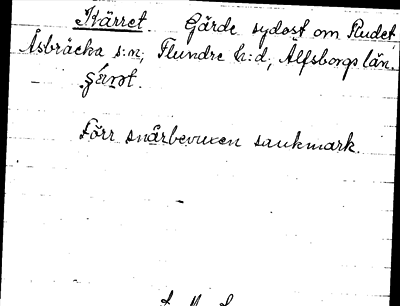 Kärret. Gärde sydost om Rudet,
Åsbräcka s:n, Flundre h:d, Älfsborgs län.
Förr snårbevuxen saukmark.